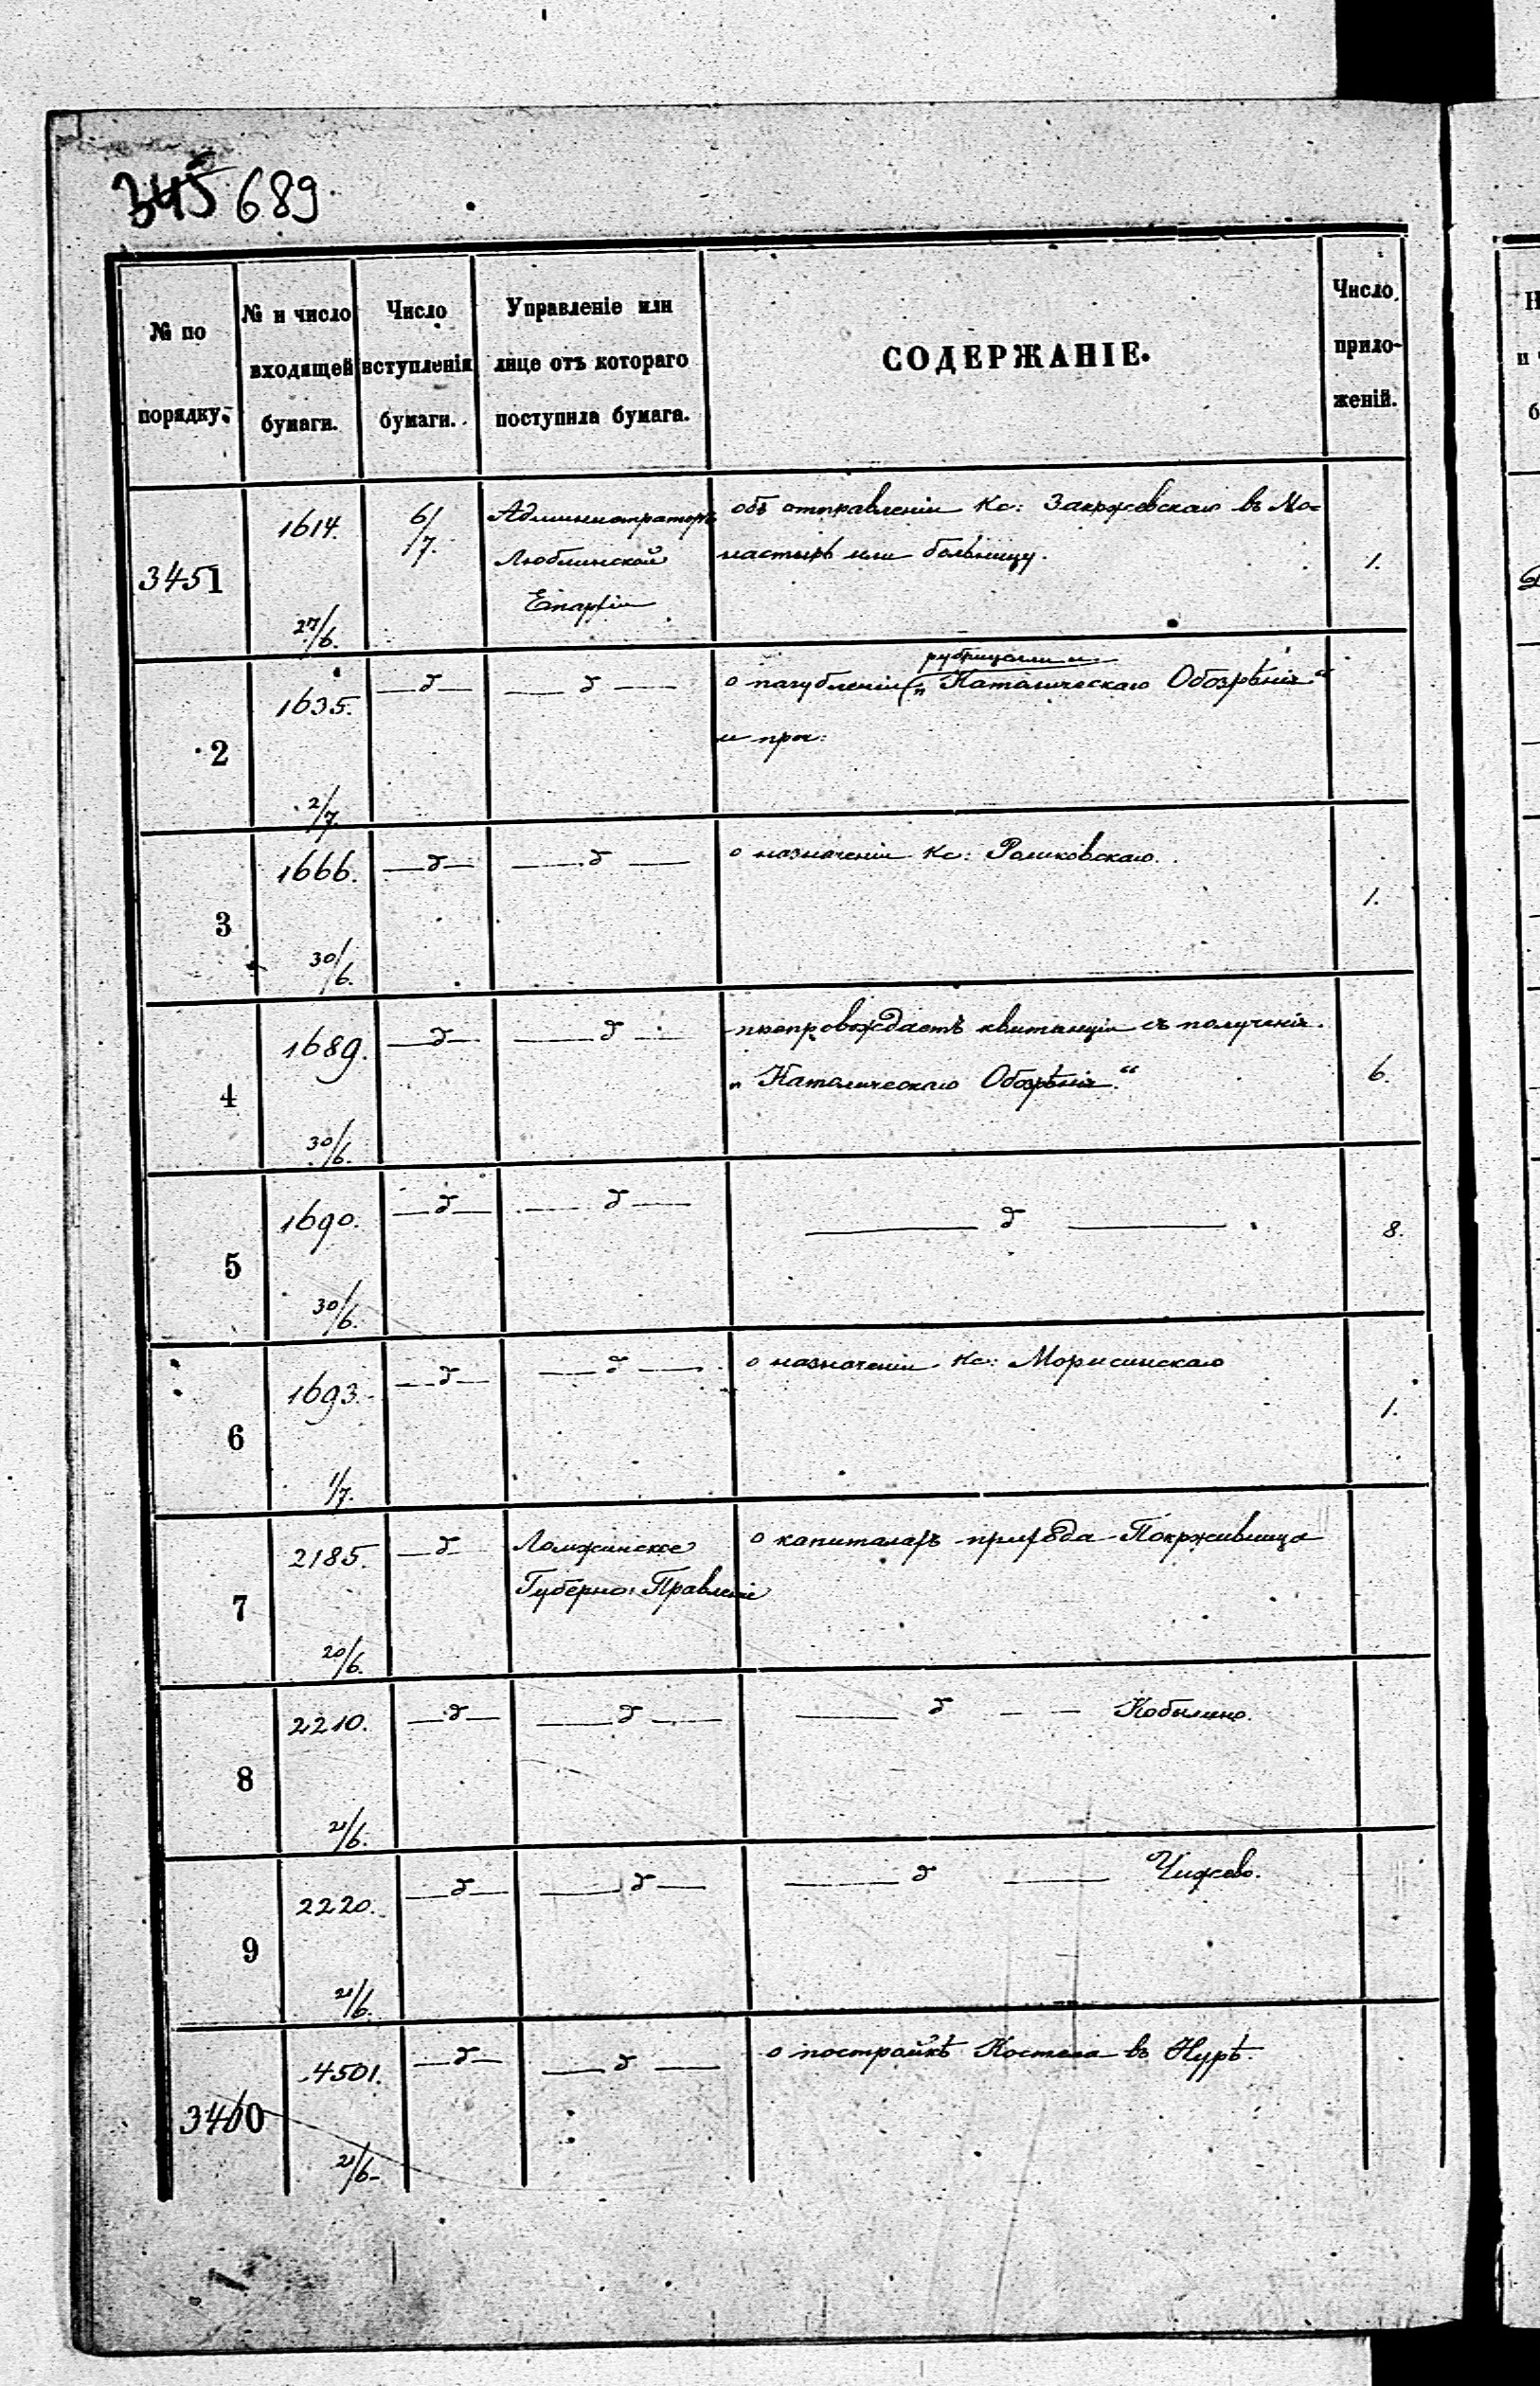 345 689
№ по порядку.
№ и число входящей бумаги.
Число вступленія бумаги.
Управленіе или лице отъ котораго поступила бумага.
СОДЕРЖАНІЕ.
Число приложеній.
3451
1614.
27/6.
6/7.
Администраторъ
Люблинской
Епархіи
объ отправленіи Кс: Закржевскаго въ Мо=
настырь или больницу.
1.
2
1635.
2/7.
—д—
— д —
рубрицели и
о погубленіи „Католическаго Обозрѣнія“
и проч:
3
1666.
30/6.
—д—
— д —
о назначеніи Кс: Рашковскаго.
1.
4
1689.
30/6.
—д—
— д —
препровождаетъ квитанціи съ полученія
„Католическаго Обозрѣнія.“
6.
5
1690.
30/6.
—д—
— д —
— д —
8.
6
1693.
1/7.
—д—
— д —
о назначеніи Кс: Морисинскаго
1.
7
2185.
20/6.
—д—
Ломжинское
Губернс: Правленіе
о капиталахъ прихода Покрживница
8
2210.
21/6.
—д—
— д —
— д — — Кобылино.
9
2220.
21/6.
—д—
— д —
— д — Чижево.
3460
4501.
21/6.
—д—
— д —
о постройкѣ Костела въ Нурѣ.